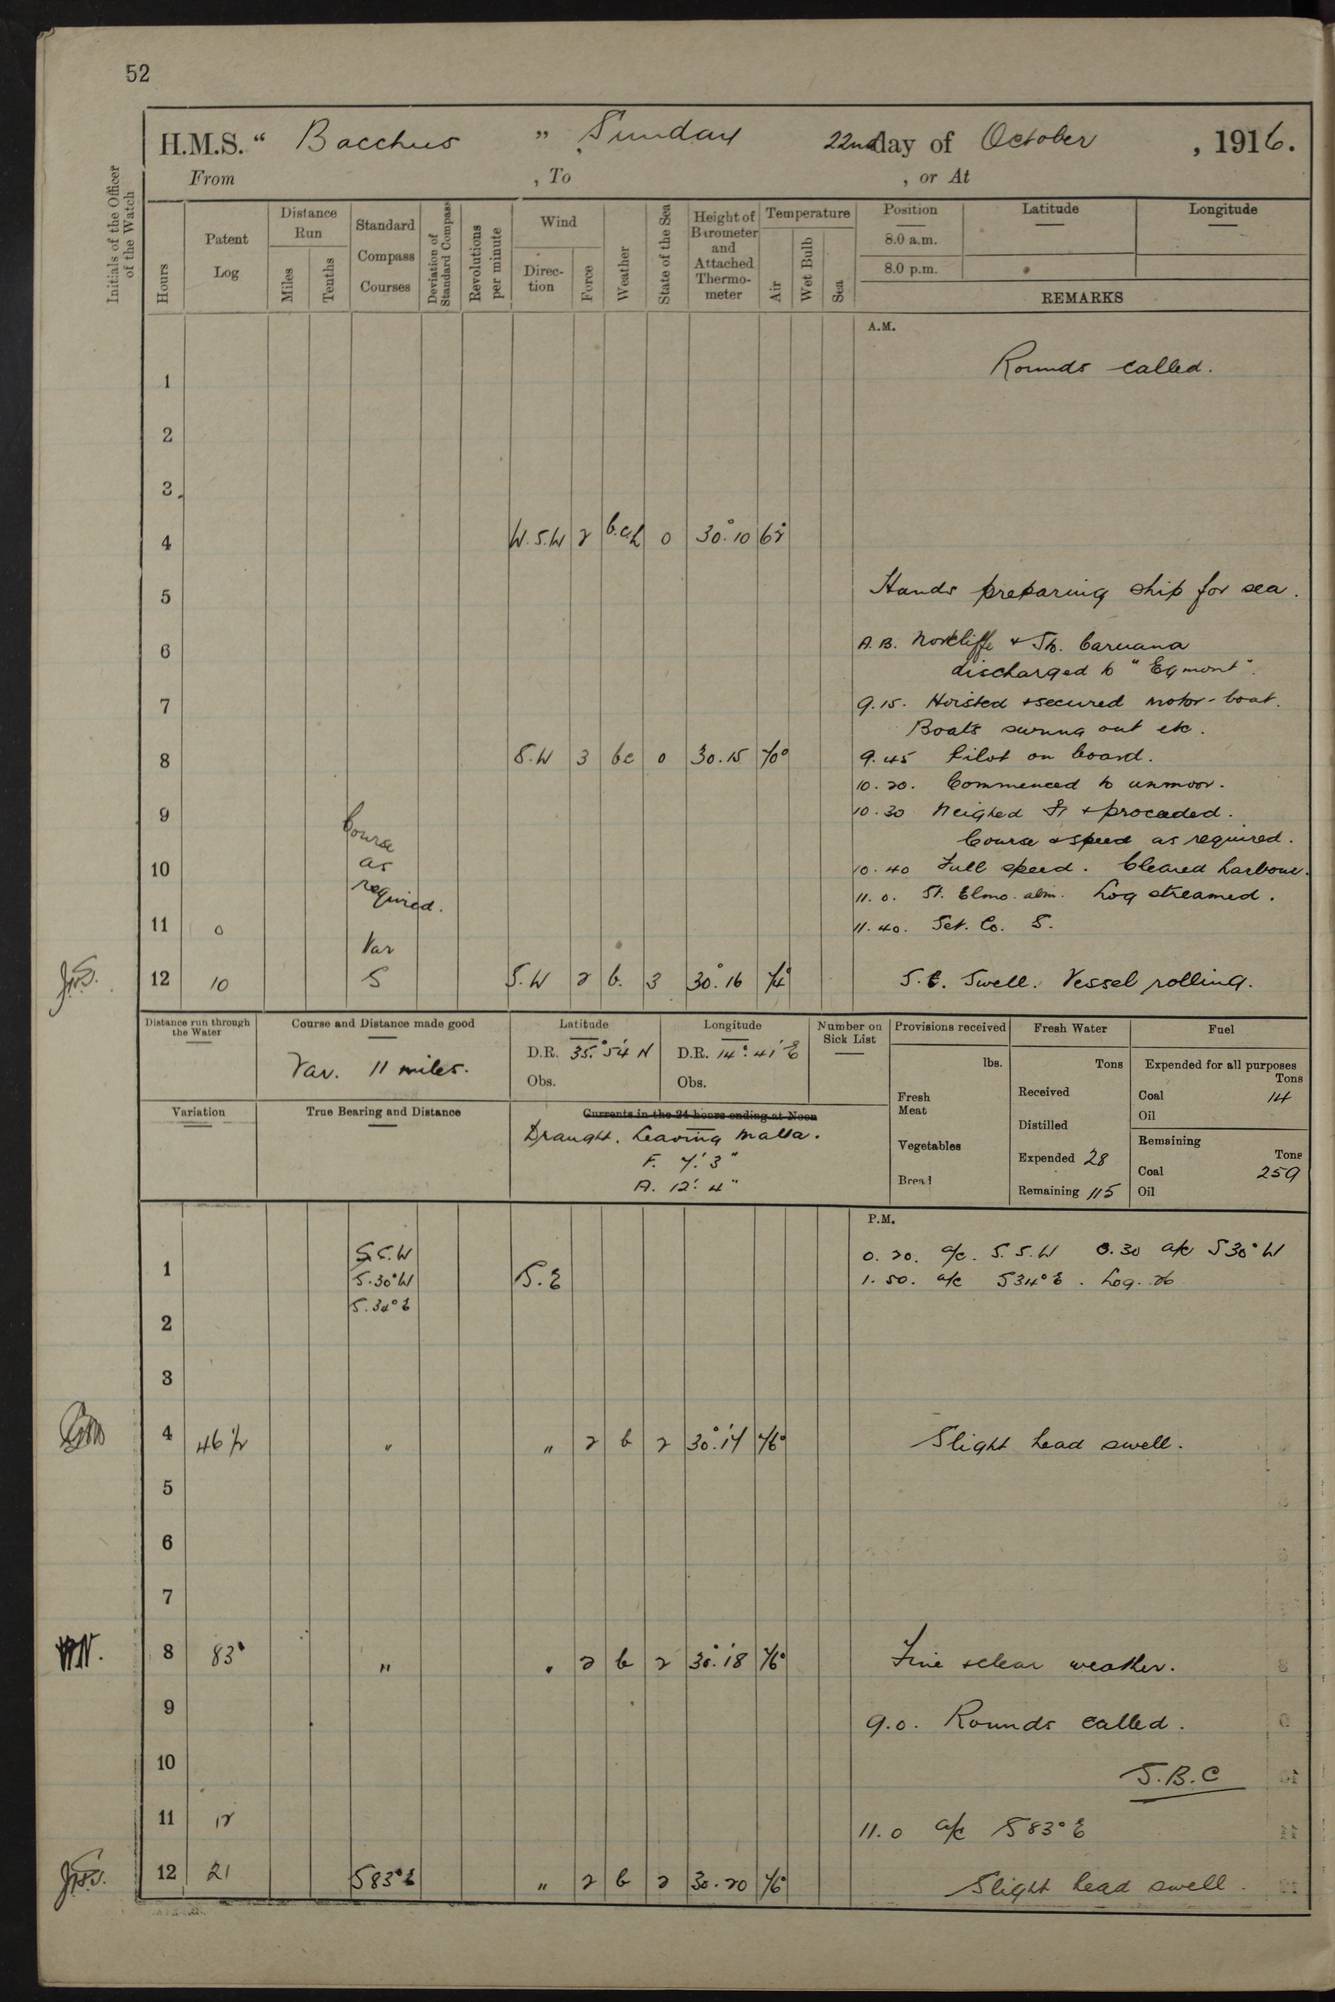 52
H.M.S. “ Bacchus ” Sunday 22nd day of October , 1916.
From , To , or At
Initials of the Officer of the Watch
Hours
Patent Log
Distance Run
Miles
Tenths
Standard Compass Courses
Deviation of Standard Compass
Revolutions per minute
Wind
Direction
Force
Weather
State of the Sea
Height of Barometer and Attached Thermometer
Temperature
Air
Wet Bulb
Sea
Position Latitude Longitude
8.0 a.m.
8.0 p.m.
REMARKS
A.M.
1 Rounds called.
2
3
4 W.S.W 2 b.c.h 0 30.10 62°
5 Hands preparing ship for sea.
6 A.B. Norcliffe & Th. Caruana
discharged to "Egmont".
7 9.15. Hoisted & secured motor-boat.
Boats swung out etc.
8 S.W 3 bc 0 30.15 70° 9.45 Pilot on board.
10.20. Commenced to unmoor.
9 Course 10.30 Weighed & proceeded.
Course & speed as required.
10 as 10.40 Full speed. Cleared harbour.
required. 11.0. St. Elmo. abm. Log streamed.
11 0 11.40. Set. Co. S.
Var
12 10 S S.W 2 b. 3 30.16 74° S.E. Swell. Vessel rolling.
Distance run through the Water
Course and Distance made good
Var. 11 miles.
Latitude
D.R. 35° 54 N
Obs.
Longitude
D.R. 14° 41' E
Obs.
Number on Sick List
Provisions received
lbs.
Fresh Meat
Vegetables
Bread
Fresh Water
Tons
Received
Distilled
Expended 28
Remaining 115
Fuel
Expended for all purposes
Tons
Coal 14
Oil
Remaining
Tons
Coal 259
Oil
Variation
True Bearing and Distance
Currents in the 24 hours ending at Noon
Draught. Leaving Malta.
F. 7' 3"
A. 12' 4"
P.M.
S.S.W 0.20. a/c. S.S.W 0.30 a/c S30°W
1 S.30°W S.E 1.50. a/c S34°E. Log. 26
S.34°E
2
3
4 46½ " " 2 b 2 30.17 76° Slight head swell.
5
6
7
8 83 " " 2 b 2 30.18 76° Fine & clear weather.
9 9.0. Rounds called.
10 S.B.C
11 12 11.0 a/c S83°E
12 21 S83°E " 2 b 2 30.20 76° Slight head swell.